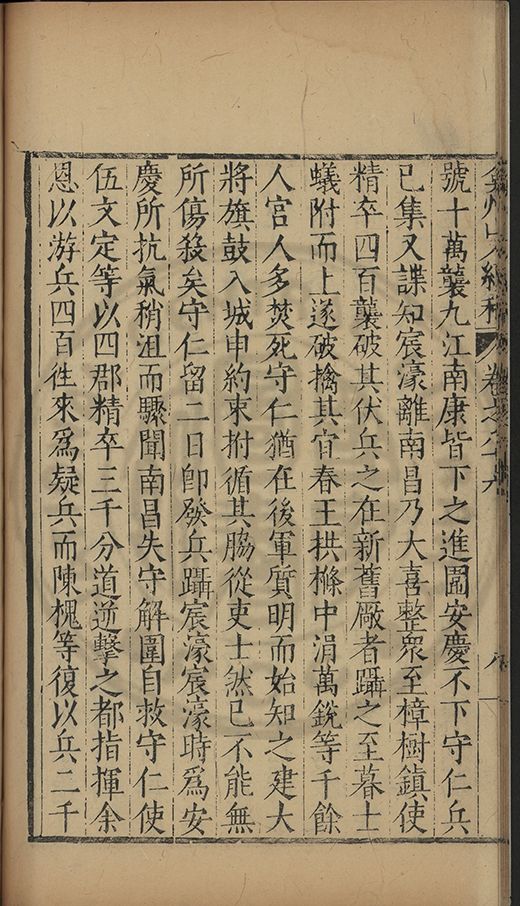 弇州史料 卷之六 八
號十萬襲九江南康皆下之進圍安慶不下守仁兵
已集又諜知宸濠離南昌乃大喜整衆至樟樹鎮使
精卒四百襲破其伏兵之在新舊廠者躡之至暮士
蟻附而上遂破擒其宜春王拱樤中涓萬銳等千餘
人宮人多焚死守仁猶在後軍質明而始知之建大
將旗鼓入城申約束拊循其脇從吏士然已不能無
所傷殺矣守仁留二日卽發兵躡宸濠宸濠時爲安
慶所抗氣稍沮而驟聞南昌失守解圍自救守仁使
伍文定等以四郡精卒三千分道逆擊之都指揮余
恩以游兵四百徃來爲疑兵而陳槐等復以兵二千